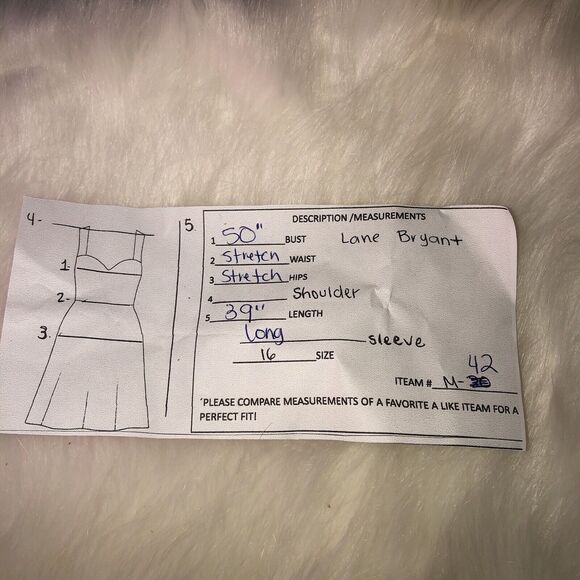 4-
1
2-
3.
5.
DESCRIPTION /MEASUREMENTS
1 50" BUST Lane Bryant
2 Stretch WAIST
3 Stretch HIPS
4 Shoulder
5 39" LENGTH
Long sleeve
16 SIZE
42
ITEAM # M-
*PLEASE COMPARE MEASUREMENTS OF A FAVORITE A LIKE ITEAM FOR A
PERFECT FIT!